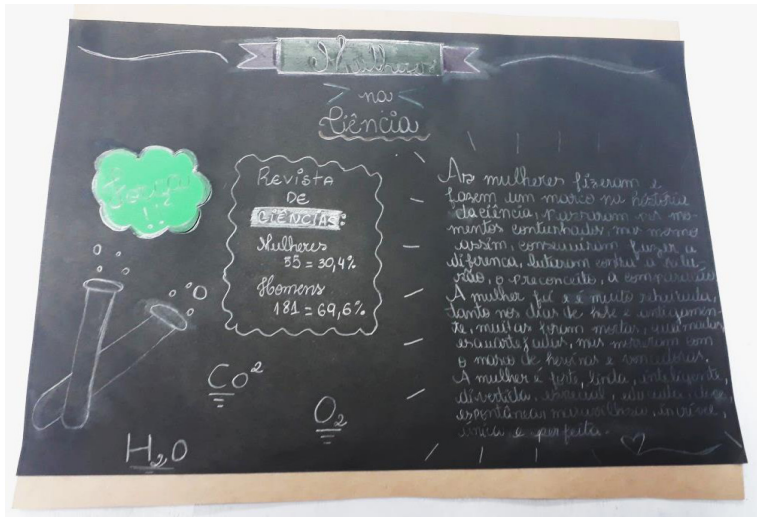 Mulheres
na
Ciência
REVISTA
DE
CIÊNCIAS:
Mulheres
55 = 30,4%
Homens
181 = 69,6%
CO²
O₂
H₂O
As mulheres fizeram e
fazem um marco na história
da ciência, nos mo-
mentos conturbados, mas mesmo
assim, conseguiram fazer a
diferença, lutaram contra a
o preconceito, a comparação
A mulher foi e é muito
tanto nos dias de hoje e antigamen-
te, muitas foram mortas, queimadas
esquartejadas, mas morreram com
o marco de heroínas e vencedoras.
A mulher é forte, linda, inteligente,
divertida, especial, educada, doce,
espontânea maravilhosa, incrível
única e perfeita.